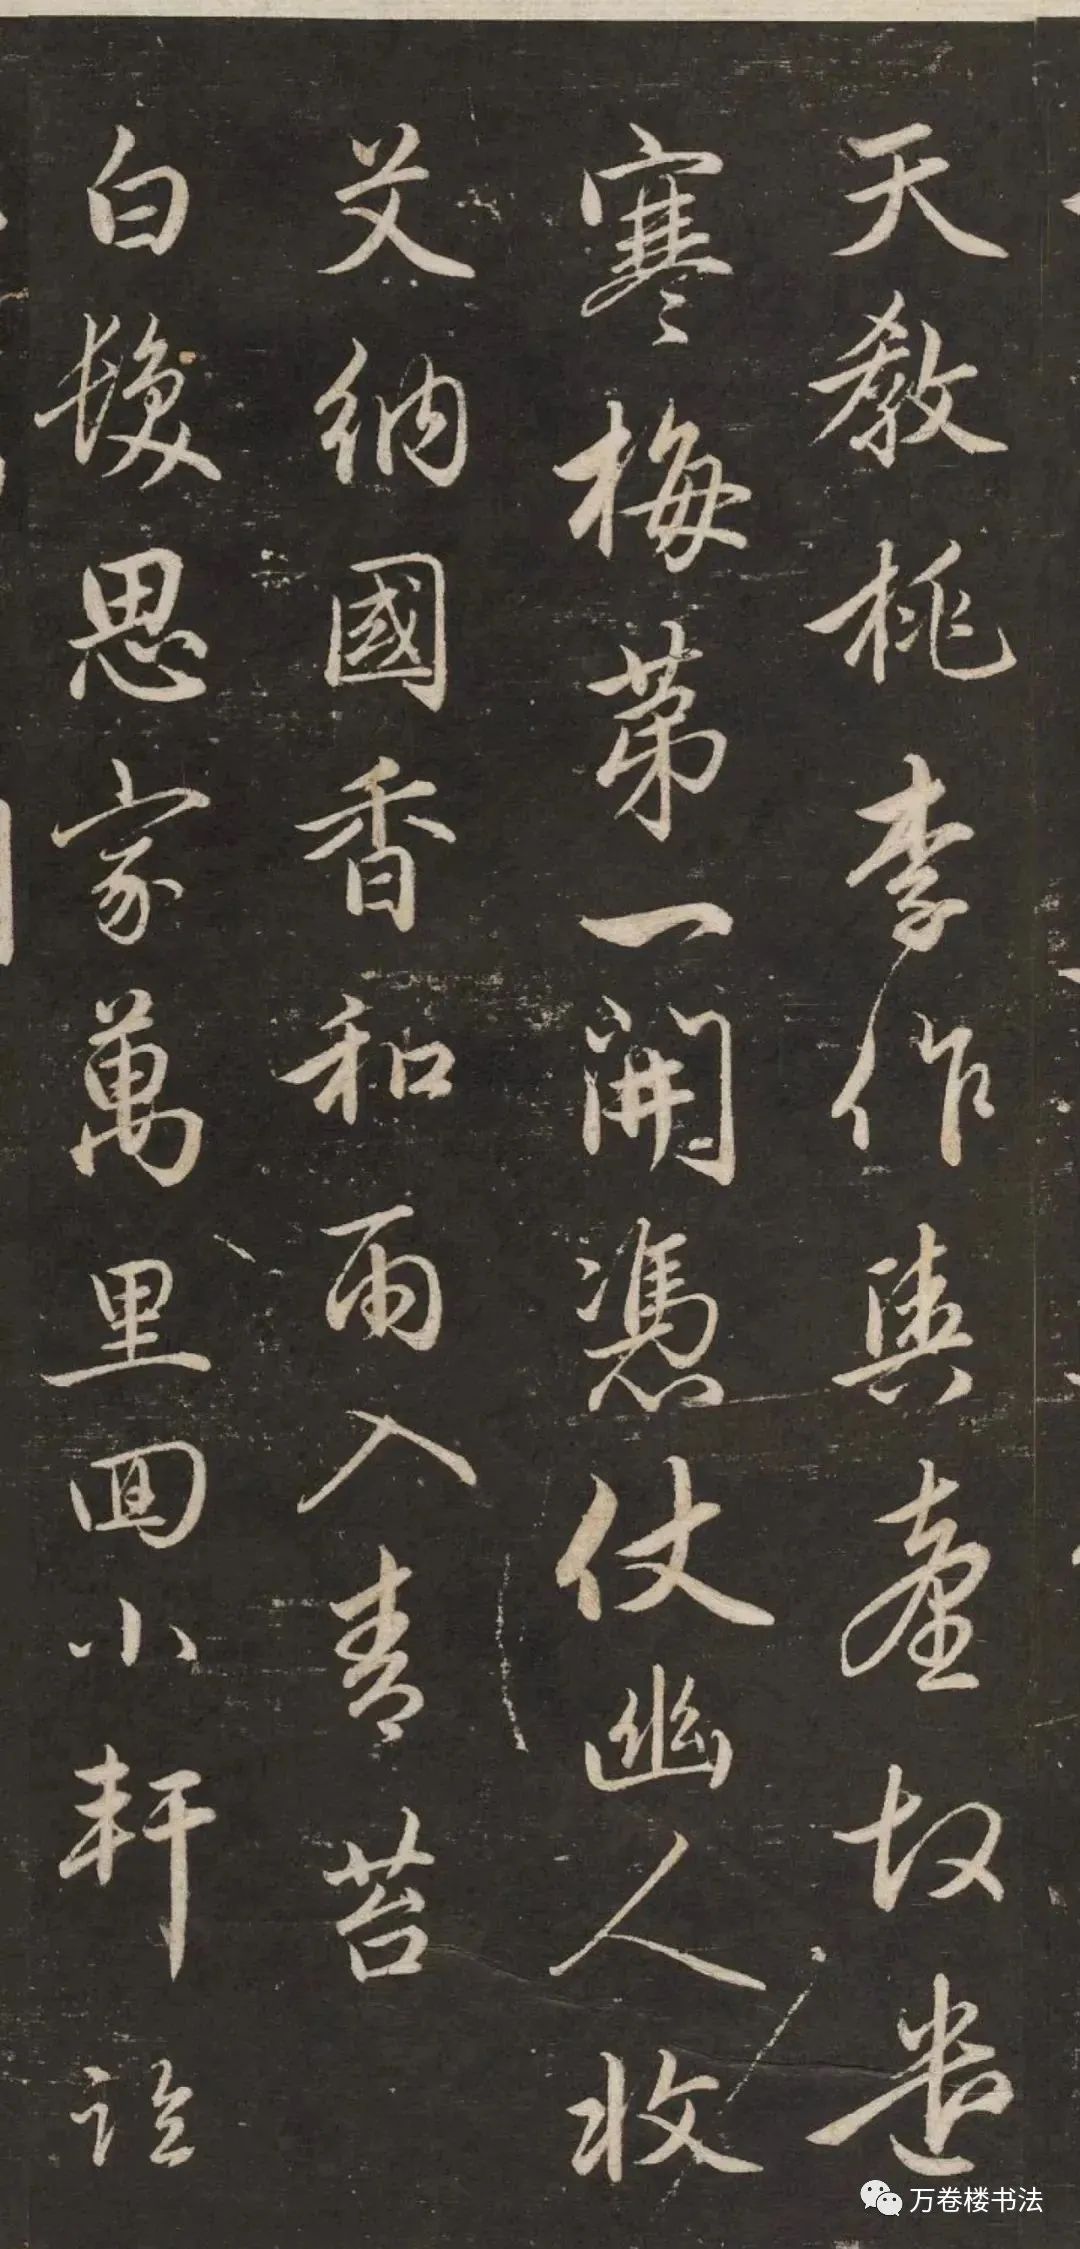 天教桃李作輿臺故遣
寒梅第一開憑仗幽人收
艾納國香和雨入青苔
白髮思家萬里回小軒臨
万卷楼书法